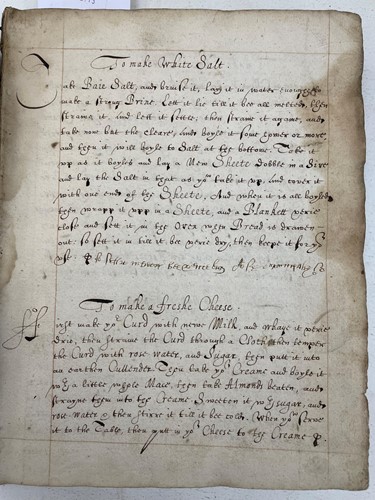 To make White Salt.
Take Baie Salt, and bruise it, lay it in water enough to
make a strong Brine. Lett it lie till it bee all melted, then
straine it, And lett it settle, then straine it againe, and
take none but the cleare, And boyle it four hower or more
and then it will boyle to Salt at the bottome. Take it
upp as it boyles and lay a Sheete dobble in a
and lay the Salt in that as yow take it upp. And cover it
with one end of the Sheete, And when it is all boyled
then wrapp it upp in a Sheete, and a Blankett verie
close and sett it in the Oven when Bread is drawen
out: so sett it in till it bee verie dry, then keepe it for yor
use
To make a freshe Cheese.
First make yor Curd with newe Milk, and whaye it verie
drie, then straine the Curd through a Cloth, then temper
the Curd with rose water, and Sugar, then putt it into
an earthen Cullender. Then take yor Creame and boyle it
wth a little whole Mace, then take Almonds beaten, and
strayne them into the Creame. Sweeten it wth sugar, and
rose water & then stirre it till it bee cold. When yow serve
it to the Table, then putt in yor Cheese to the Creame